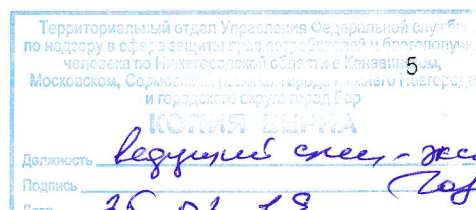 Территориальный отдел Управления Федеральной служб
по надзору в сфере защиты прав потребителей и благополуч
человека по Нижегородской области в Канавинском,
Московском, Сормовском города Нижнего Новгород
и городского округа город Бор
5
КОПИЯ ВЕРНА
Должность ведущий спец-экс
Подпись
Дата